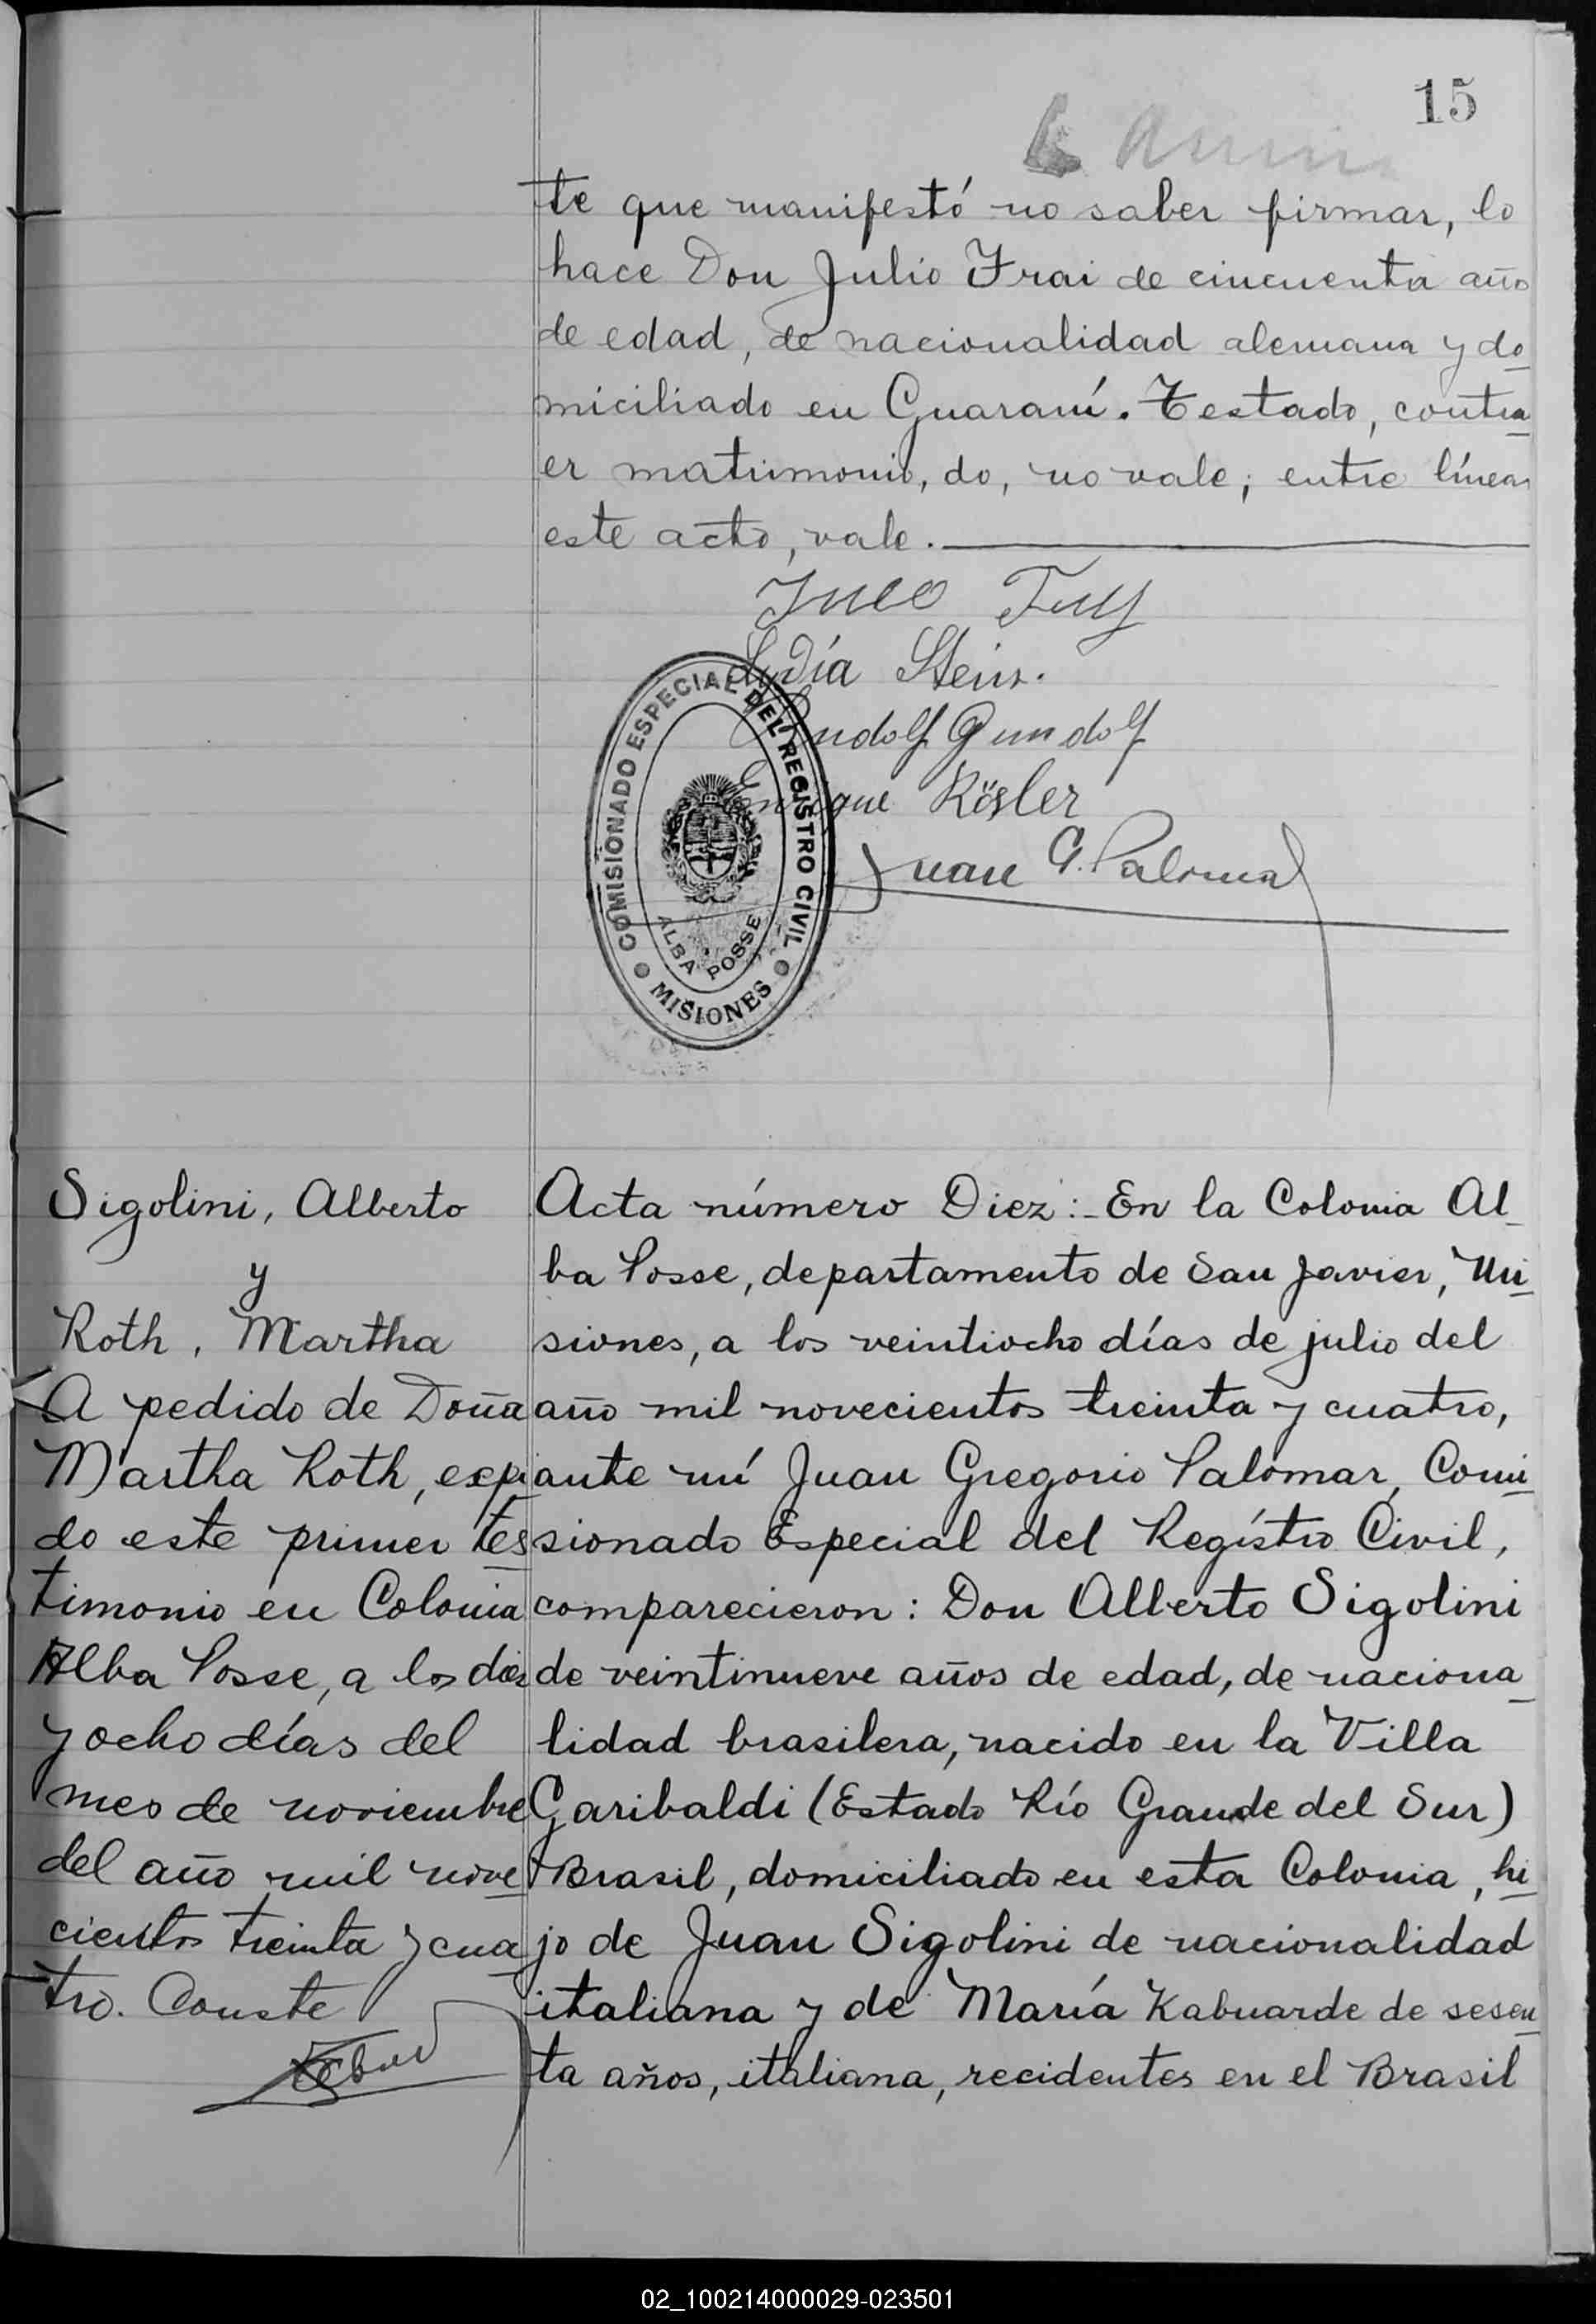 15
te que manifestó no saber firmar, lo
hace Don Julio Frai de cincuenta año
de edad, de nacionalidad alemana y do
miciliado en Guaraní. Testado, contra
er matrimonio, do, no vale; entre líneas
este acto, vale.
Lydía Stein.
Rudolf Gundolf
Enrique Rösler
Juan G. Palomar
COMISIONADO ESPECIAL DEL REGISTRO CIVIL
ALBA POSSE
MISIONES
Sigolini, Alberto
y
Roth, Martha
A pedido de Doña
Martha Roth, expi
do este primer tes
timonio en Colonia
Alba Posse, a los diez
y ocho días del
mes de noviembre
del año mil nove
cientos treinta y cua
tro. Conste
Acta número Diez:- En la Colonia Al
ba Posse, departamento de San Javier, Mi
siones, a los veintiocho días de julio del
año mil novecientos treinta y cuatro,
ante mí Juan Gregorio Palomar, Comi
sionado Especial del Regístro Civil,
comparecieron: Don Alberto Sigolini
de veintinueve años de edad, de naciona
lidad brasilera, nacido en la Villa
Garibaldi (Estado Río Grande del Sur)
Brasil, domiciliado en esta Colonia, hi
jo de Juan Sigolini de nacionalidad
italiana y de María Kabuarde de sesen
ta años, italiana, recidentes en el Brasil
02_100214000029-023501